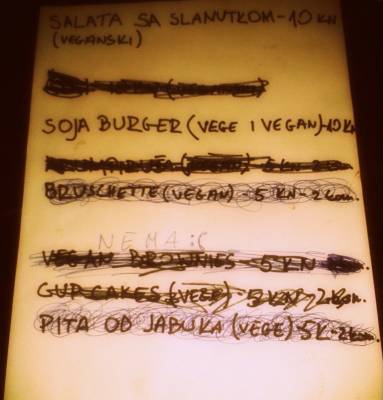 SALATA SA SLANUTKOM - 10 KN
(VEGANSKI)
SOJA BURGER (VEGE I VEGAN) - 10 KN
BRUSCHETTE (VEGAN) - 5 KN - 2 kom.
NEMA :(
VEGAN BROWNIES - 5 KN
CUP CAKES (VEGE) - 5 KN - 2 kom.
PITA OD JABUKA (VEGE) - 5 K - 2 kom.